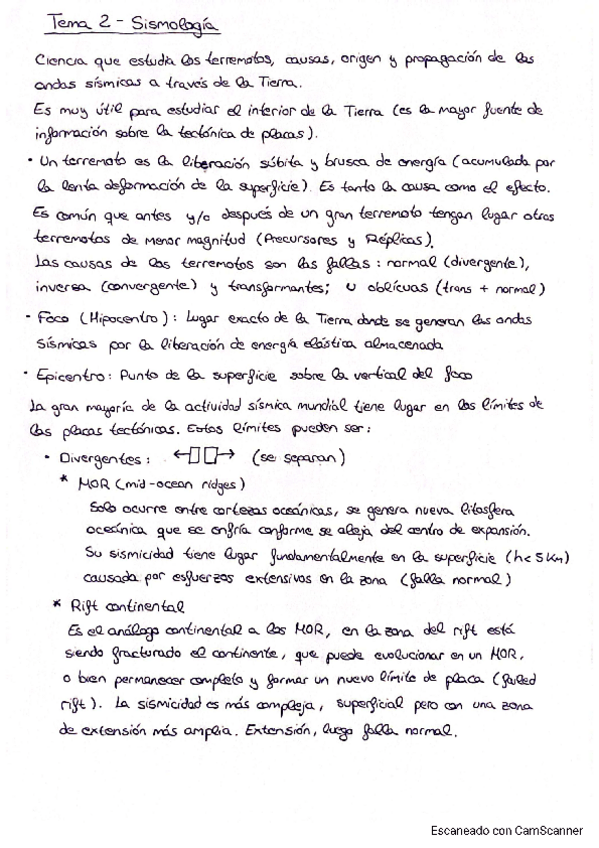 Tema 2 - Sismología
Ciencia que estudia los terremotos, causas, origen y propagación de las
ondas sísmicas a través de la Tierra.
Es muy útil para estudiar el interior de la Tierra (es la mayor fuente de
información sobre la tectónica de placas).
• Un terremoto es la liberación súbita y brusca de energía (acumulada por
la lenta deformación de la superficie). Es tanto la causa como el efecto.
Es común que antes y/o después de un gran terremoto tengan lugar otros
terremotos de menor magnitud (Precursores y Réplicas).
Las causas de los terremotos son las fallas: normal (divergente),
inversa (convergente) y transformantes; u oblícuas (trans + normal)
• Foco (Hipocentro): Lugar exacto de la Tierra donde se generan las ondas
sísmicas por la liberación de energía elástica almacenada
• Epicentro: Punto de la superficie sobre la vertical del foco
La gran mayoría de la actividad sísmica mundial tiene lugar en los límites de
las placas tectónicas. Estos límites pueden ser:
• Divergentes: (se separan)
* MOR (mid-ocean ridges)
Solo ocurre entre cortezas oceánicas, se genera nueva litosfera
oceánica que se enfría conforme se aleja del centro de expansión.
Su sismicidad tiene lugar fundamentalmente en la superficie (h < 5 Km)
causada por esfuerzos extensivos en la zona (falla normal)
* Rift continental
Es el análogo continental a los MOR, en la zona del rift está
siendo fracturado el continente, que puede evolucionar en un MOR,
o bien permanecer completo y formar un nuevo límite de placa (failed
rift). La sismicidad es más compleja, superficial pero con una zona
de extensión más amplia. Extensión, luego falla normal.
Escaneado con CamScanner